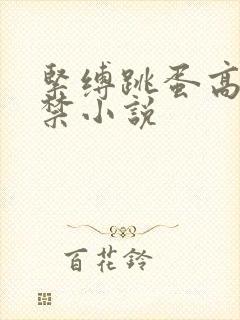 緊縛跳蛋高
禁小説
百花鈴